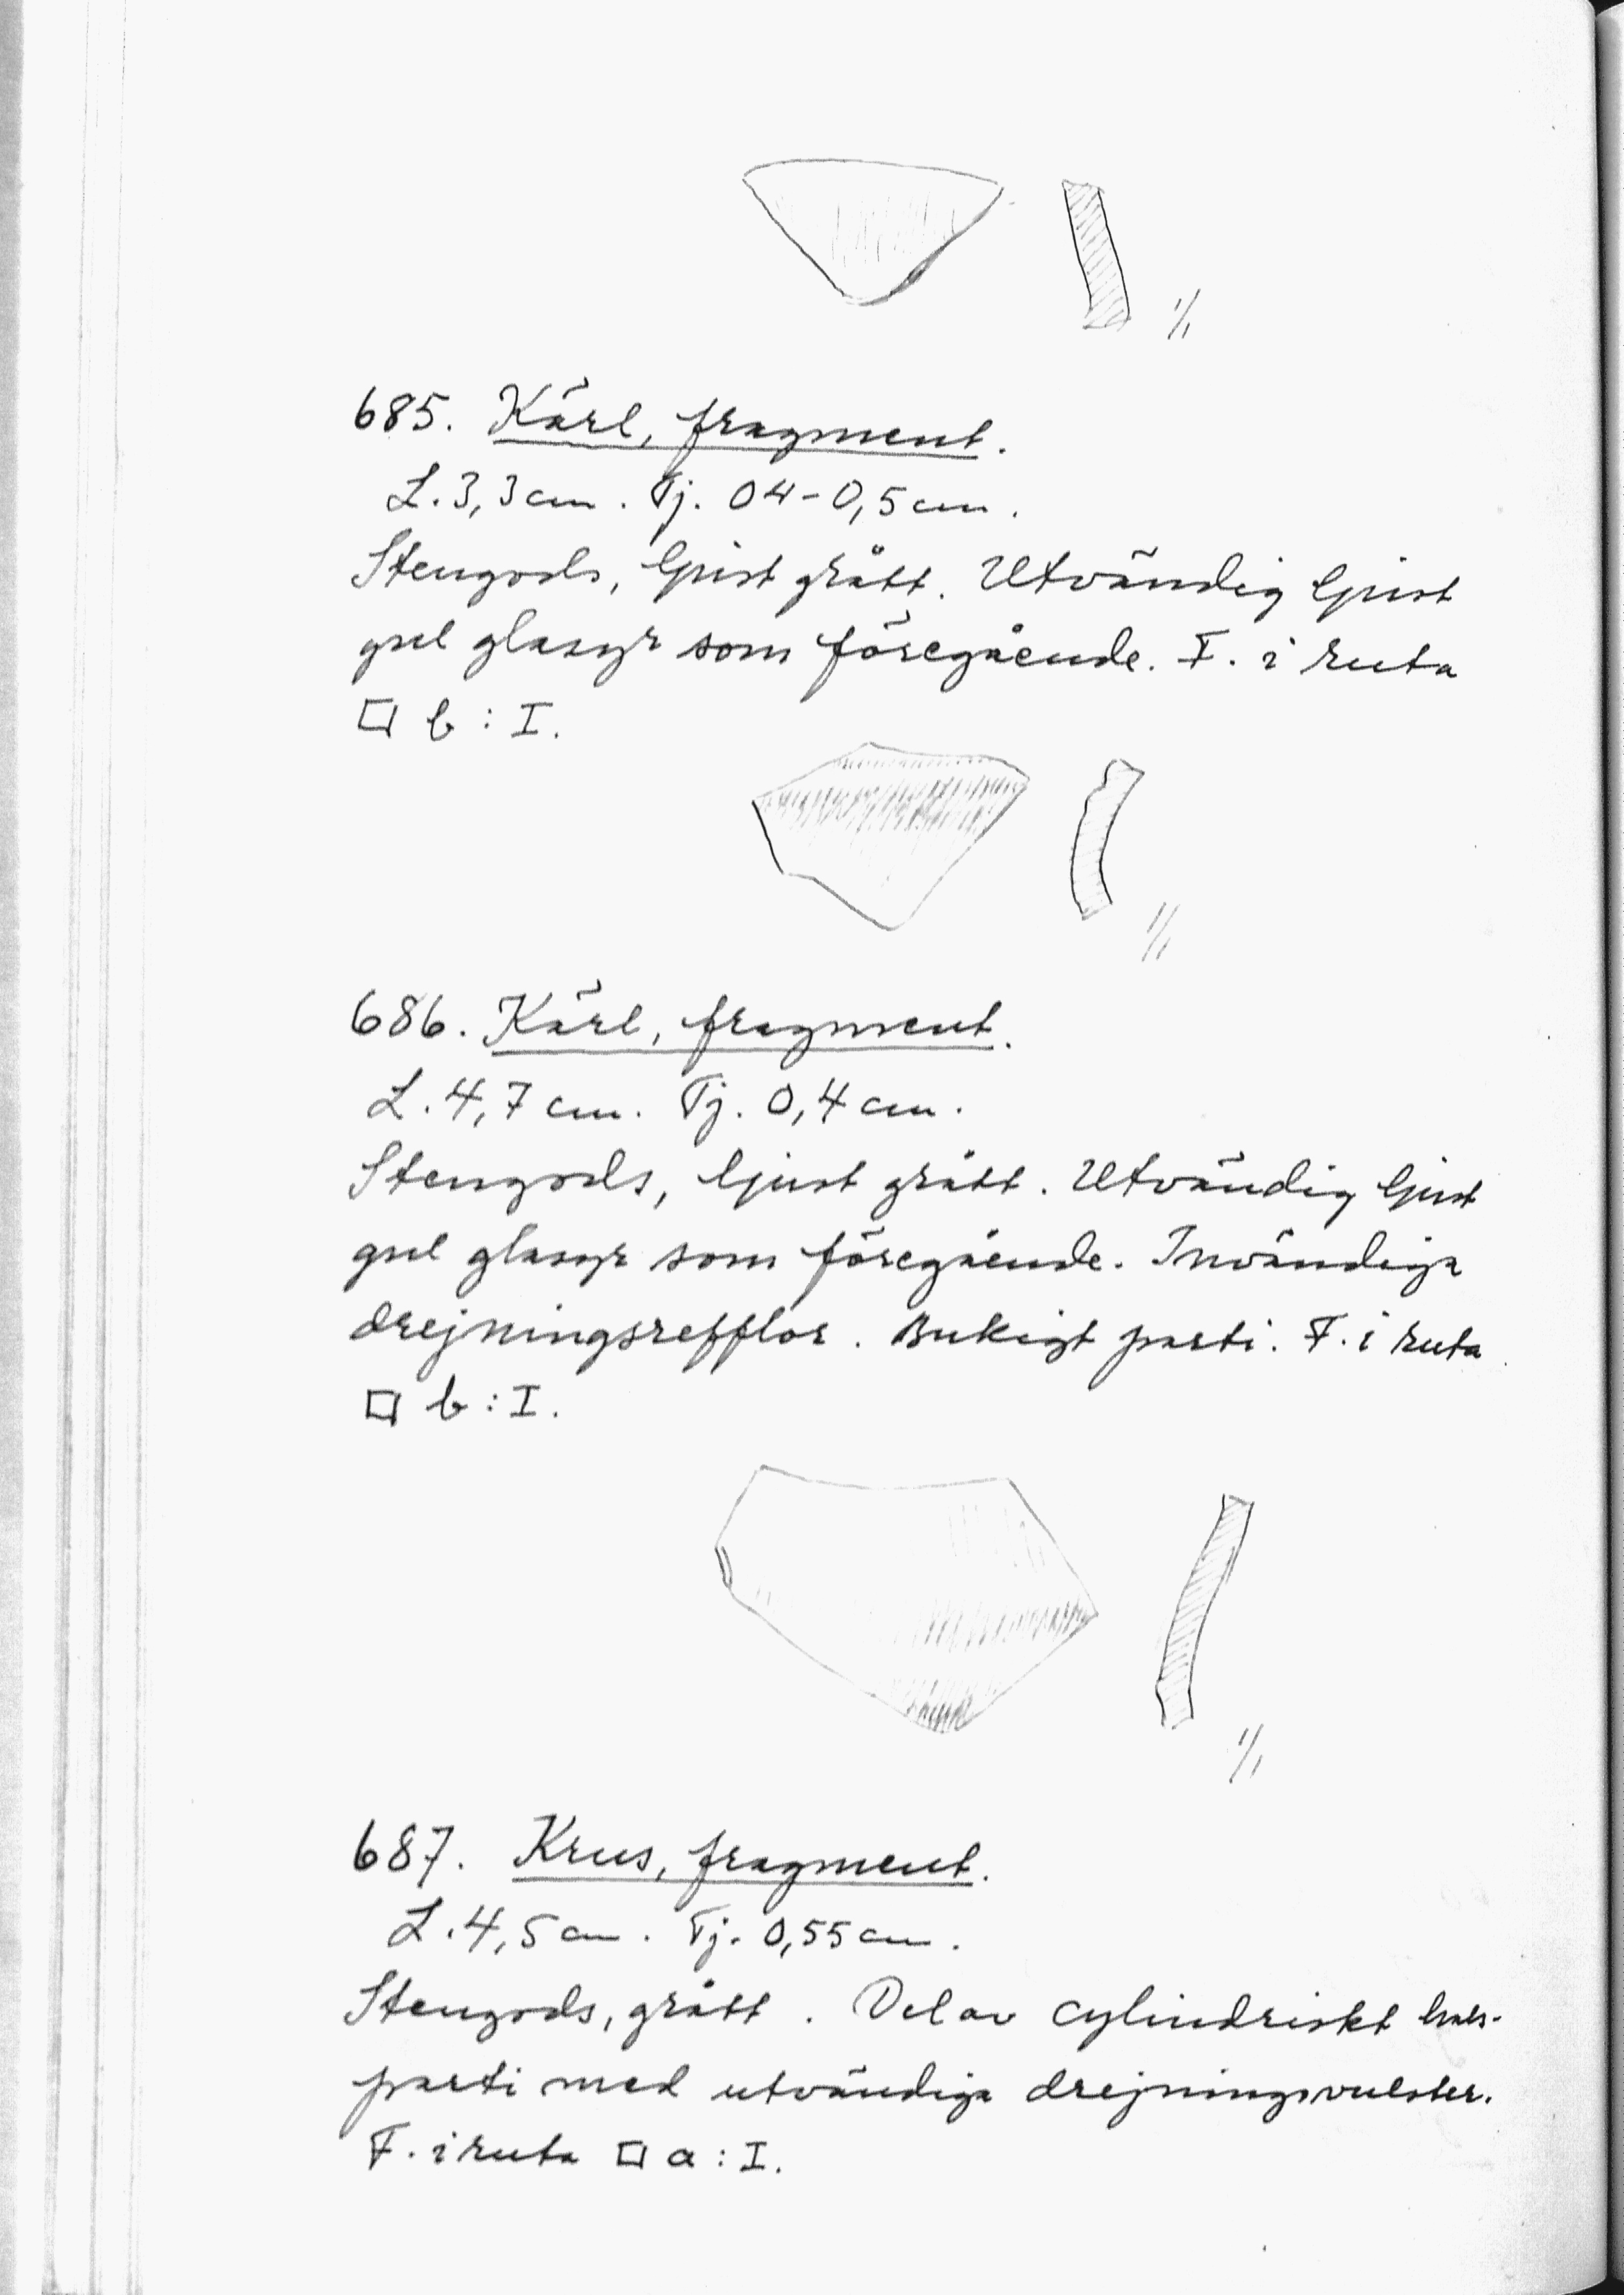 1/1
685. Kärl, fragment.
L. 3,3 cm. Tj. 04-0,5 cm.
Stengods, ljust grått. Utvändig ljust
gul glasyr som föregående. F. i ruta
□ b : I.
1/1
686. Kärl, fragment.
L. 4,7 cm. Tj. 0,4 cm.
Stengods, ljust grått. Utvändig ljust
gul glasyr som föregående. Invändiga
drejningsrefflor. Bukigt parti. F. i ruta
□ b : I.
1/1
687. Krus, fragment.
L. 4,5 cm. Tj. 0,55 cm.
Stengods, grått. Del av cylindriskt hals-
parti med utvändiga drejningsvulster.
F. i ruta □ a : I.